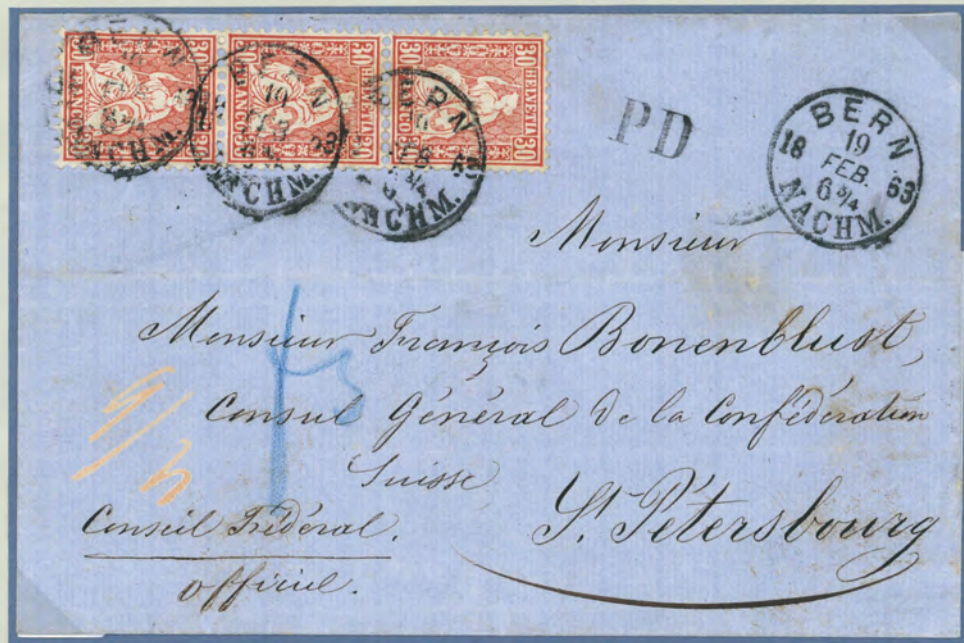 30 HELVETIA 30
FRANCO
30 HELVETIA 30
FRANCO
30 HELVETIA 30
FRANCO
BERN
19
FEB
6 3/4
NACHM.
BERN
19
FEB
63
6 3/4
NACHM.
BERN
FEB
63
NACHM.
PD
BERN
18 19 63
FEB.
6 3/4
NACHM.
Monsieur
Monsieur François Bonenblust,
Consul Général de la Confédération
Suisse
St. Pétersbourg
Conseil Fédéral.
Officiel.